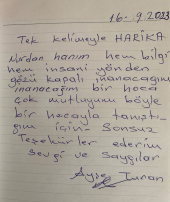 16-9.2023
Tek kelimeyle HARİKA
Nurdan hanım hem bilgi
hem insani yönden
gözü kapalı inanacağım
inanacağım bir hoca
çok mutluyum böyle
bir hocayla tanıştı
ğım için- Sonsuz
Teşekürler ederim
sevgi ve saygılar
Ayşe Turan